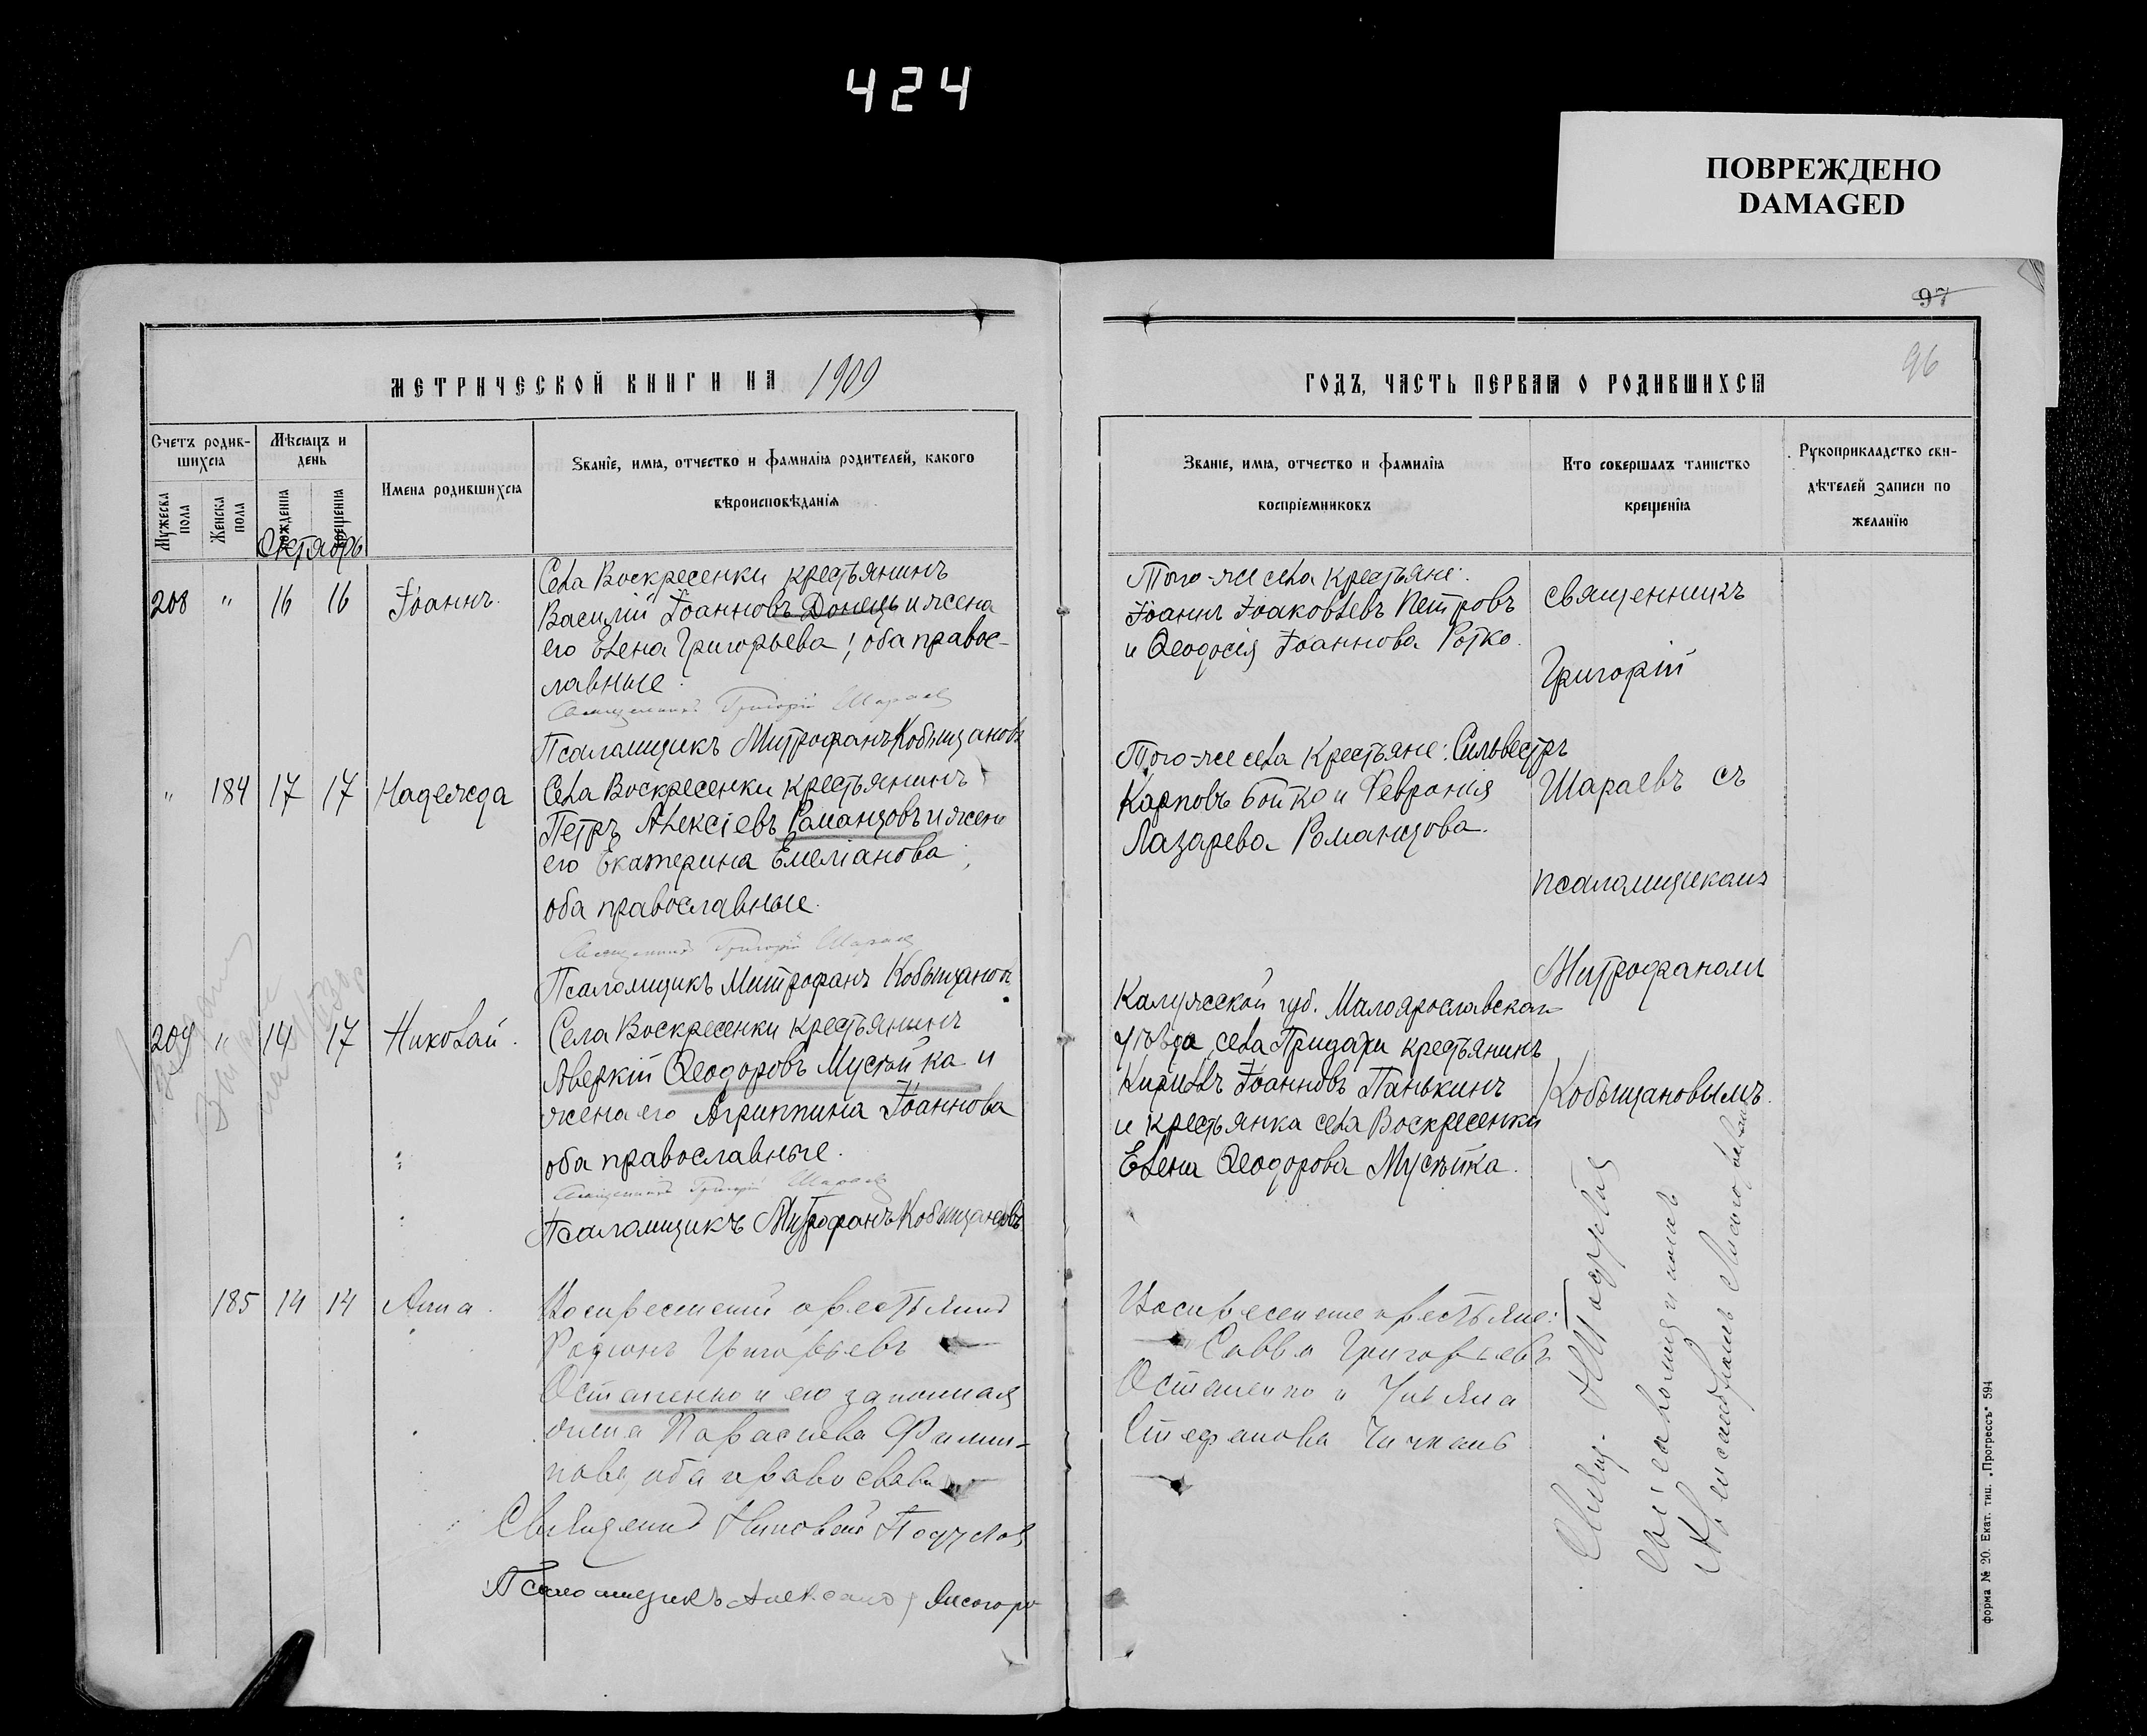 424
ПОВРЕЖДЕНО
DAMAGED
97
96
МЕТРИЧЕСКОЙ КНИГИ НА 1909
Счетъ родив-
шихся
Мѣсяцъ и
день
Мужеска
пола
Женска
пола
рожденія
крещенія
Октябрь
Имена родившихся
Званіе, имя, отчество и фамилія родителей, какого
вѣроисповѣданія
208 " 16 16 Іоаннъ.
Села Воскресенки крестьянинъ
Василій Іоанновъ Донецъ и жена
его Елена Григорьева; оба правос-
лавные.
Священникъ Григорій Шараевъ
Псаломщикъ Митрофанъ Кобыщановъ
" 184 17 17 Надежда
Села Воскресенки крестьянинъ
Петръ Алексіевъ Романцовъ и жена
его Екатерина Емеліанова;
оба православные.
Священникъ Григорій Шараевъ
Псаломщикъ Митрофанъ Кобыщановъ
209 " 14 17 Николай.
Села Воскресенки крестьянинъ
Аверкій Ѳеодоровъ Мусѣйка и
жена его Агриппина Іоаннова
оба православные.
Священникъ Григорій Шараевъ
Псаломщикъ Митрофанъ Кобыщановъ
185 14 14 Анна.
Воскресенскій крестьянинъ
Родіонъ Григорьевъ
Остапенко и его законная
жена Параскева Филип-
пова, оба православн
Священникъ Николай
Псаломщикъ Александръ
ГОДЪ, ЧАСТЬ ПЕРВАЯ О РОДИВШИХСЯ
Званіе, имя, отчество и фамилія
воспріемниковъ
Кто совершалъ таинство
крещенія
Рукоприкладство сви-
дѣтелей записи по
желанію
Того-же села крестьяне:
Іоаннъ Іоаковлевъ Петровъ
и Ѳеодосія Іоаннова Ротко.
Того-же села крестьяне: Сильвестръ
Карповъ Бойко и Февронія
Лазарева Романцова.
Калужской губ. Малоярославскаго
уѣзда, села Придачи крестьянинъ
Кириллъ Іоанновъ Панькинъ
и крестьянка села Воскресенки
Елена Ѳеодорова Мусѣйка.
Воскресенские крестьяне:
Савва Григорьевъ
Остапенко и Ульяна
Стефанова Чичкань
священникъ
Григорій
Шараевъ съ
псаломщикомъ
Митрофаномъ
Кобыщановымъ.
Свящ.
псаломщикомъ
Александромъ
форма № 20. Екат. тип. „Прогрессъ" 594